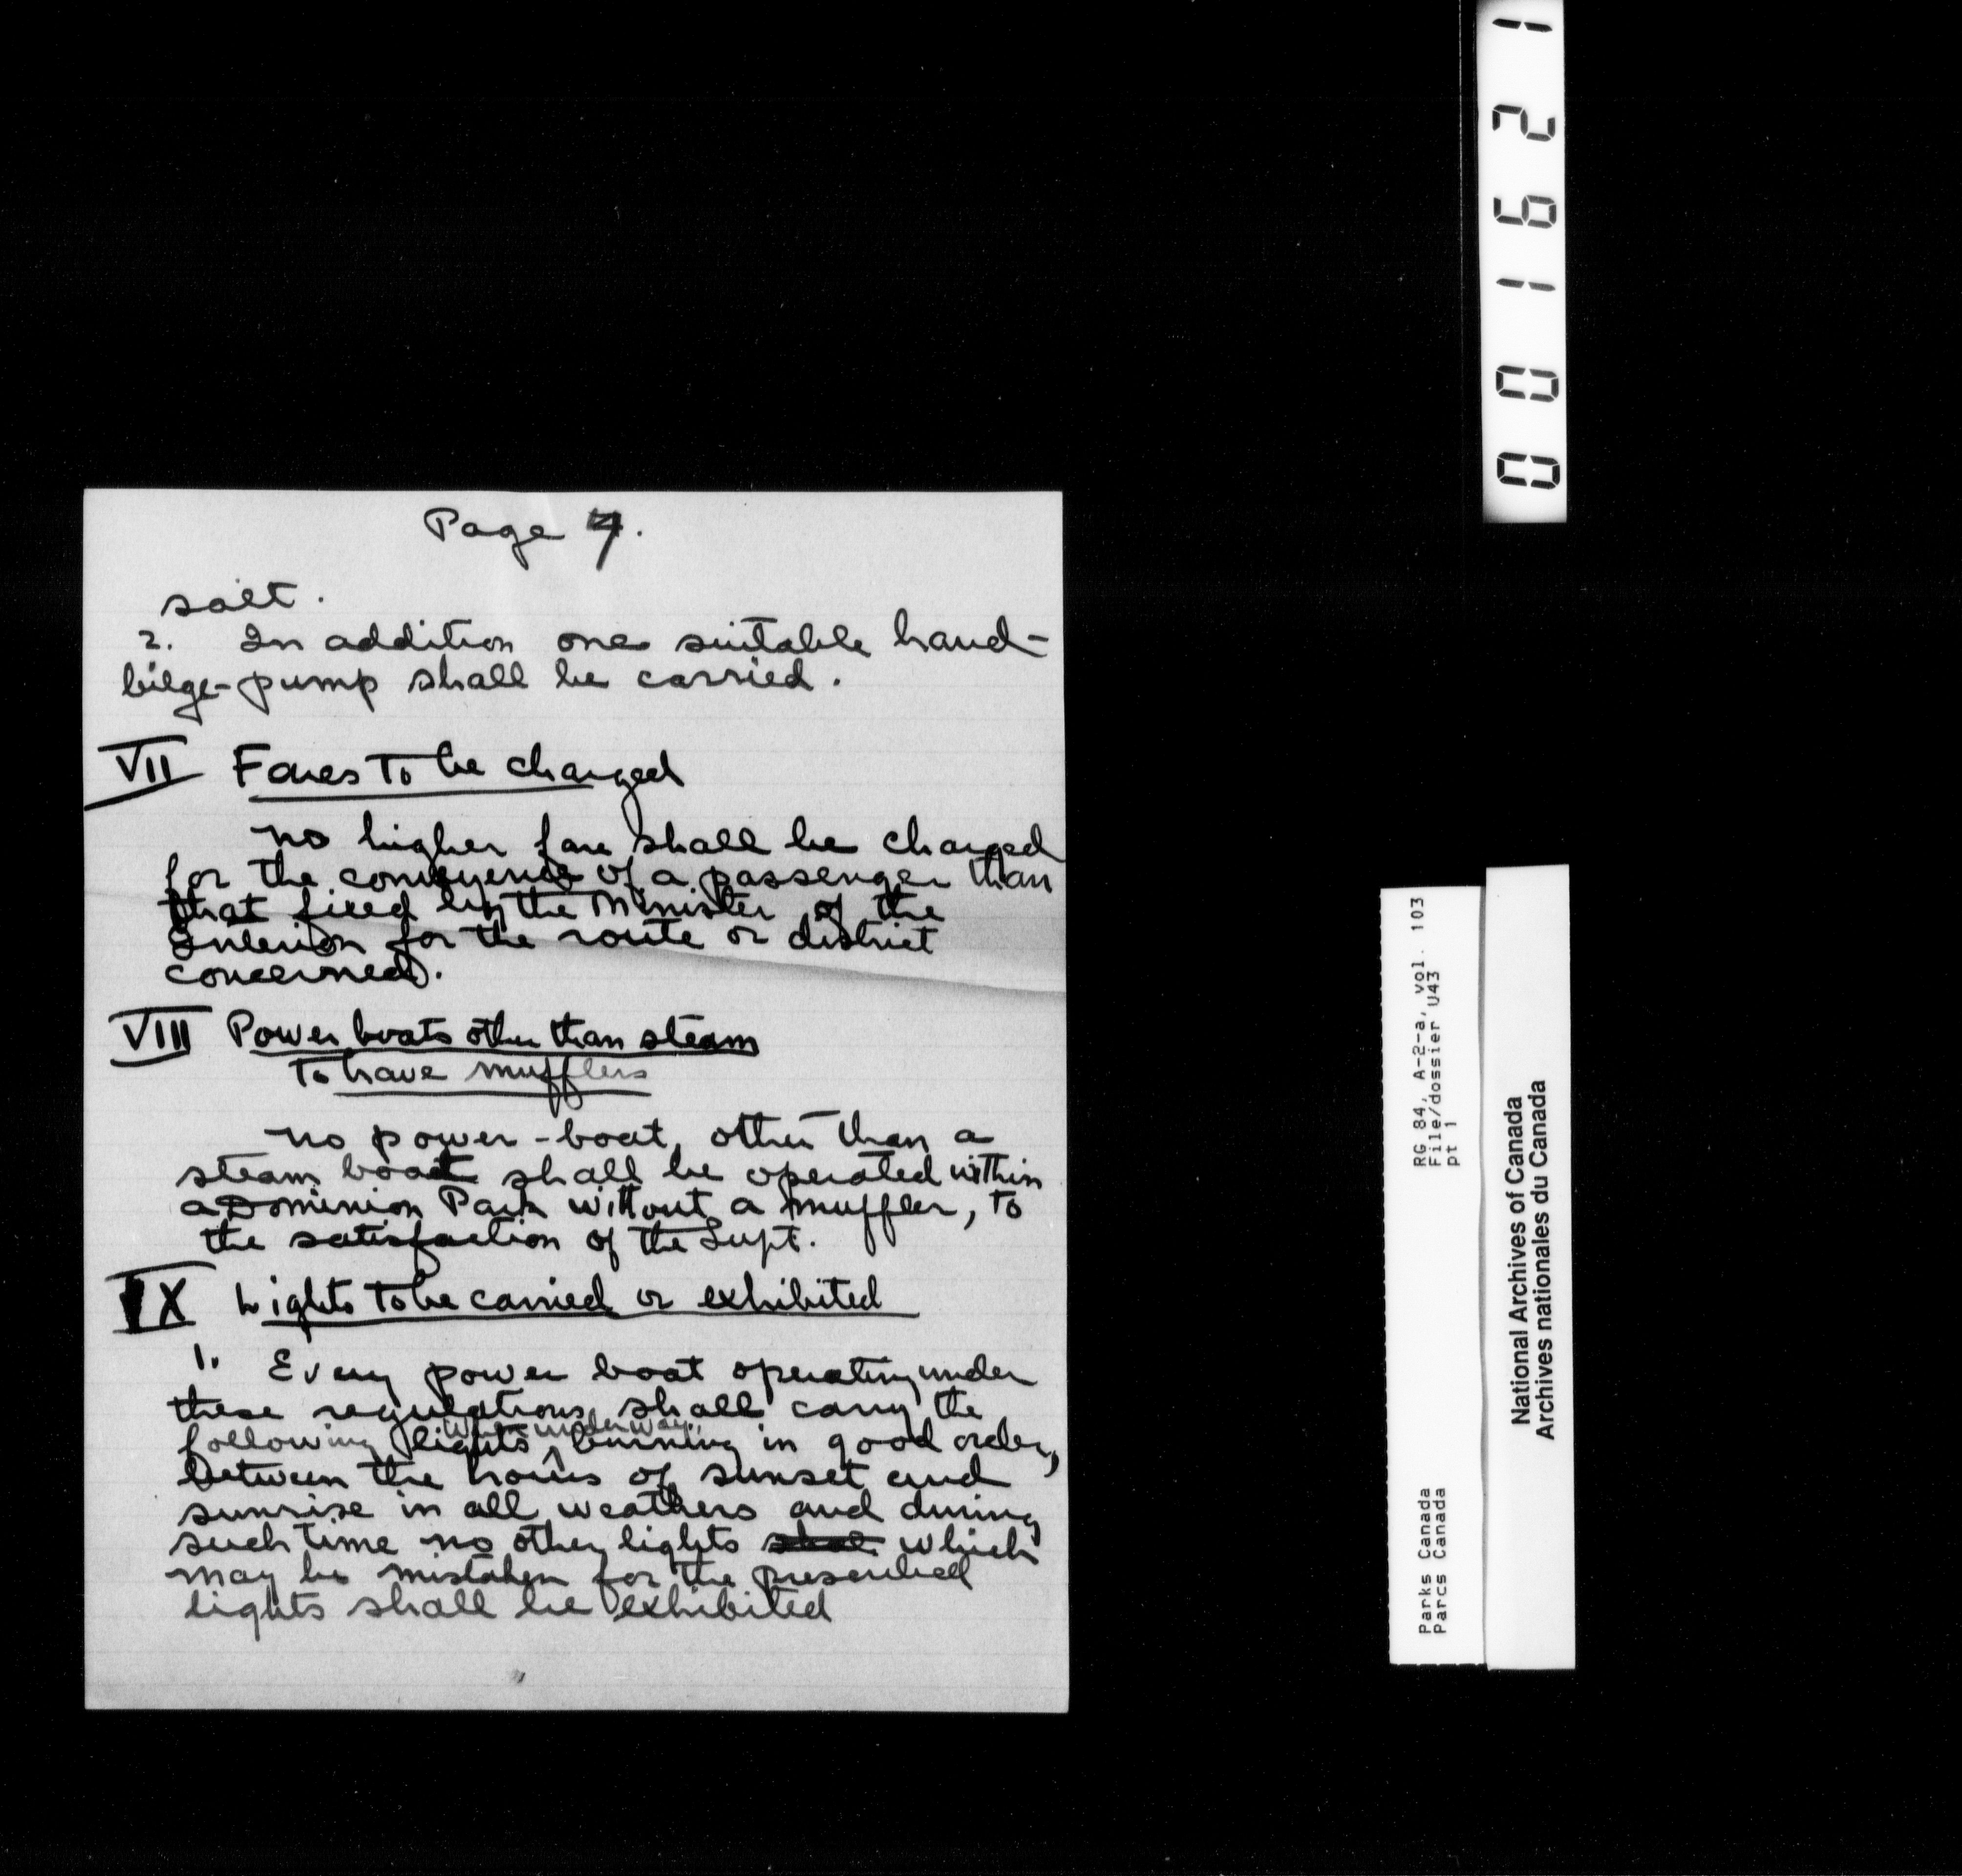 Page 7.
salt.
2. In addition one suitable hand-
bilge-pump shall be carried.
VII Fares To be charged
no higher fare shall be charged
for the conveyence of a passenger than
that fixed by the Minister of the
Interior for the route or district
concerned.
VIII Power boats other than steam
To have mufflers
no power-boat, other than a
steam boat shall be operated within
a Dominion Park without a muffler, to
the satisfaction of the Supt.
IX Lights to be carried or exhibited
1. Every power boat operating under
these regulations, shall carry the
when under way,
following lights ^ burning in good order,
between the hours of sunset and
sunrise in all weathers and during
such time no other lights which
may be mistaken for the prescribed
lights shall be exhibited
001621
RG 84, A-2-a, vol. 103
File/dossier U43
pt 1
Parks Canada
Parcs Canada
National Archives of Canada
Archives nationales du Canada